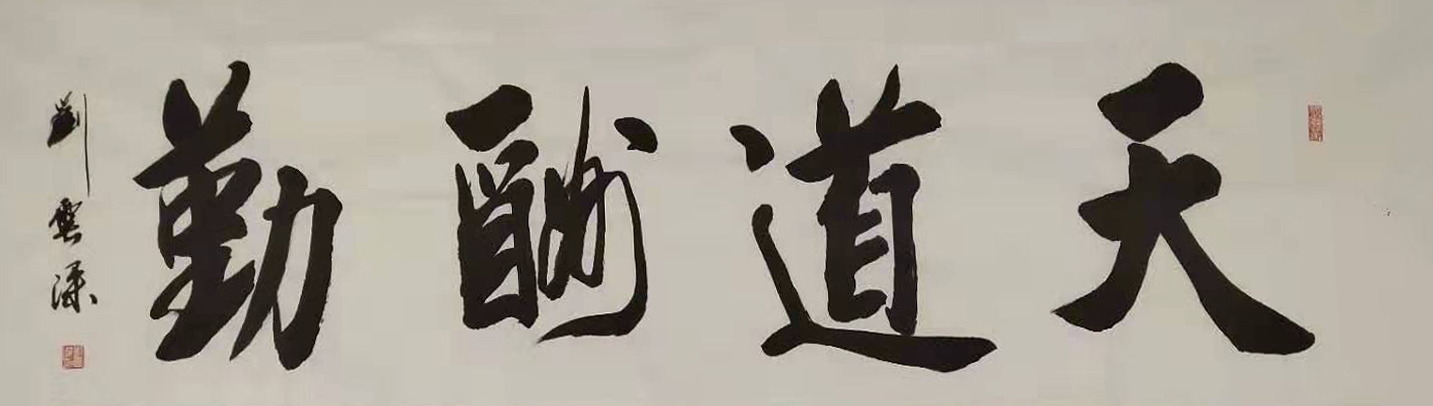 天道酬勤
劉雲漾